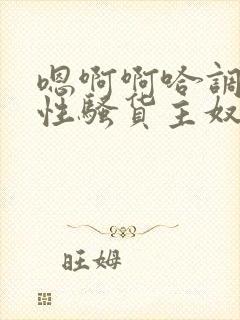 嗯啊啊哈調
性騷货主奴
旺姆